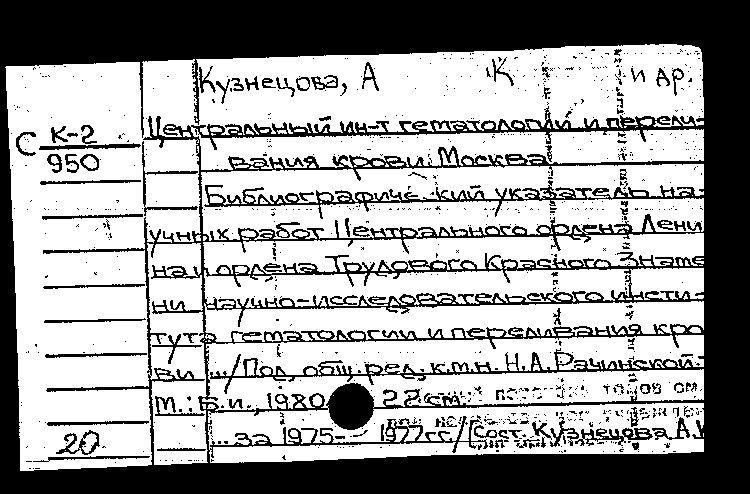 Кузнецова, А К и др.
С К-2
950
Центральный ин-т гематологии и перели-
вания крови. Москва
Библиографиче кий указатель на-
учных работ Центрального ордена Лени
на и ордена Трудового Красного Знаме
ни научно-исследовательского инсти-
тута гематологии и переливания кро
ви .../Под общ. ред. к.м.н. Н.А. Рачинской.-
М.: Б.и., 1980 22 см
20 ... за 1975- 1977гг./Сост. Кузнецова А.К